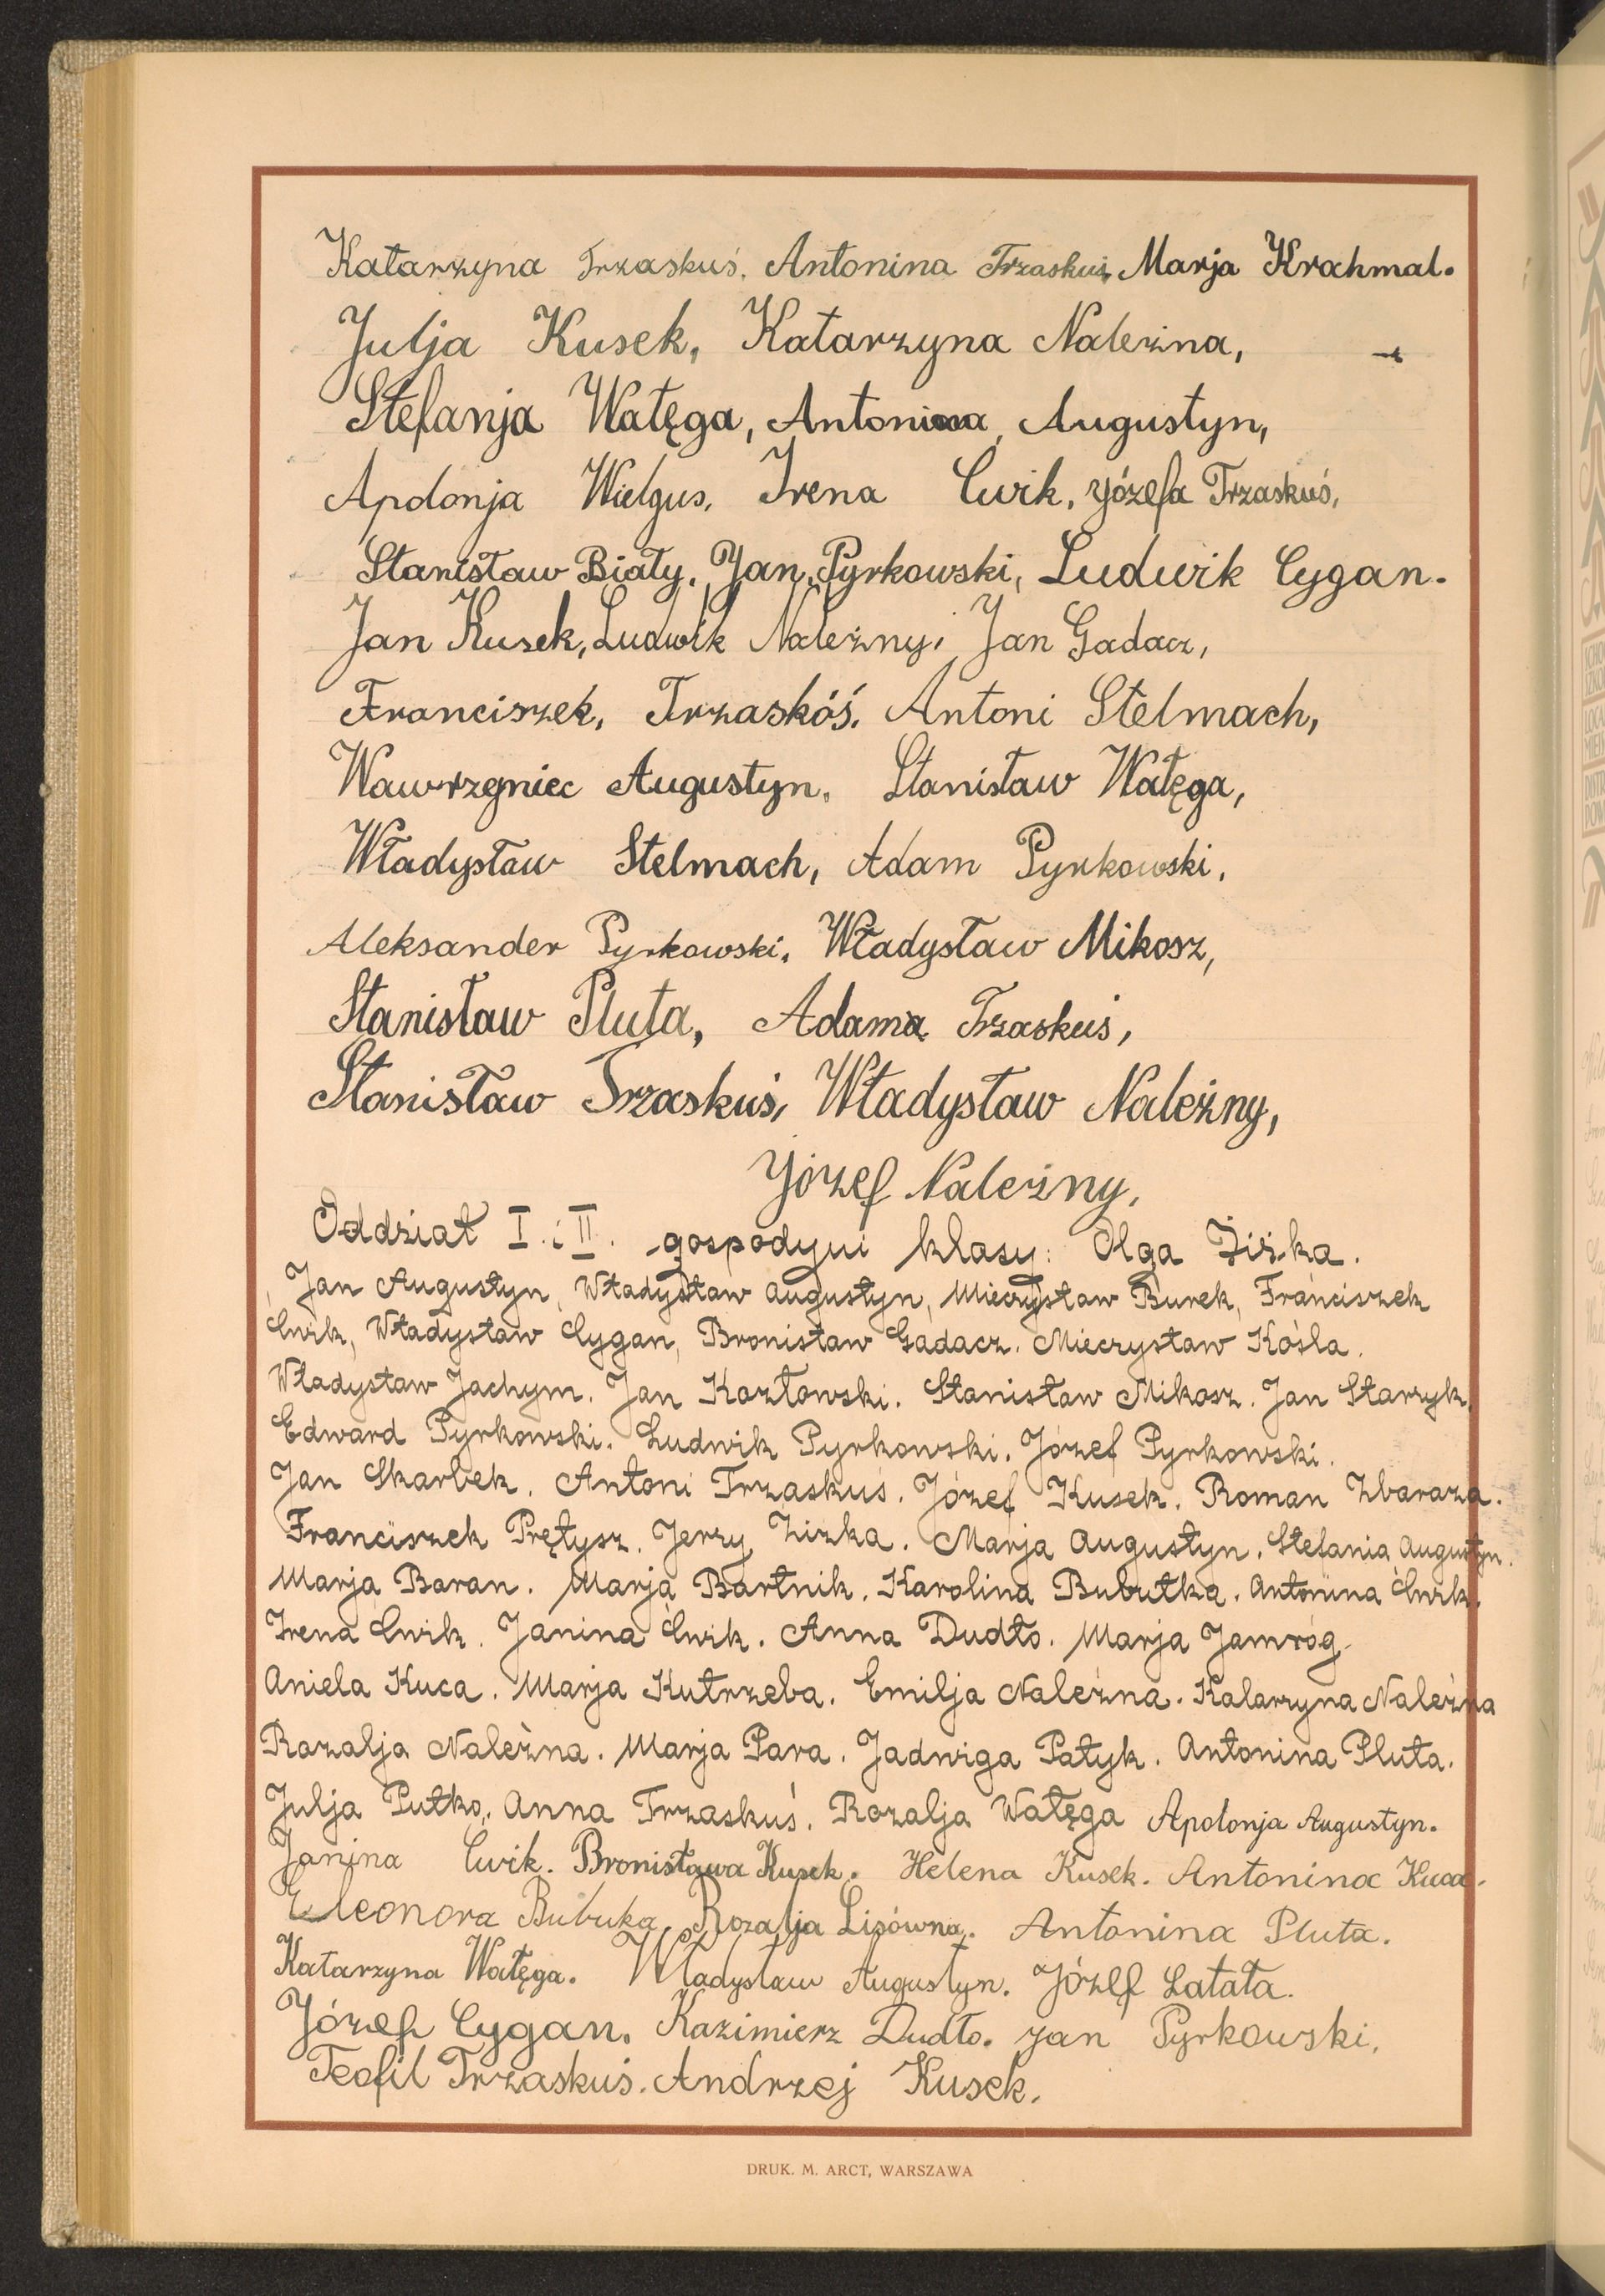 Katarzyna Trzaskuś. Antonina Trzaskuś, Marja Krochmal.
Julja Kusek, Katarzyna Należna,
Stefanja Wałęga, Antonina, Augustyn,
Apolonja Wielgus, Irena Ćwik, Józefa Trzaskuś,
Stanisław Biały, Jan, Pyrkowski, Ludwik Cygan.
Jan Kusek, Ludwik Należny, Jan Gadacz,
Franciszek, Trzaskóś, Antoni Stelmach,
Wawrzyniec Augustyn, Stanisław Wałęga,
Władysław Stelmach, Adam Pyrkowski,
Aleksander Pyrkowski, Władysław Mikosz,
Stanisław Pluta, Adama Trzaskuś,
Stanisław Trzaskuś, Władysław Należny,
Józef Należny,
Oddział I. i II. gospodyni klasy: Olga Ziżka.
Jan Augustyn, Władysław Augustyn, Mieczysław Burek, Franciszek
Ćwik, Władysław Cygan, Bronisław Gadacz. Mieczysław Kośla.
Władysław Jachym. Jan Kozłowski. Stanisław Mikosz. Jan Starzyk.
Edward Pyrkowski. Ludwik Pyrkowski. Józef Pyrkowski.
Jan Skarbek. Antoni Trzaskuś. Józef Kusek. Roman Zbaraza.
Franciszek Prętysz. Jerzy Ziżka. Marja Augustyn. Stefania Augustyn.
Marja Baran. Marja Bartnik. Karolina Bubutka. Antonina Ćwik.
Irena Ćwik. Janina Ćwik. Anna Dudło. Marja Jamróg.
Aniela Kuca. Marja Kutrzeba. Emilja Należna. Katarzyna Należna
Rozalja Należna. Marja Para. Jadwiga Patyk. Antonina Pluta.
Julja Putko, Anna Trzaskuś. Rozalja Wałęga Apolonja Augustyn.
Janina Ćwik. Bronisława Kusek. Helena Kusek. Antonina Kuca.
Eleonora Bubuka, Rozalja Lisówna. Antonina Pluta.
Katarzyna Wałęga. Władysław Augustyn. Józef Łatała.
Józef Cygan. Kazimierz Dudło. Jan Pyrkowski,
Teofil Trzaskuś. Andrzej Kusek.
DRUK. M. ARCT, WARSZAWA